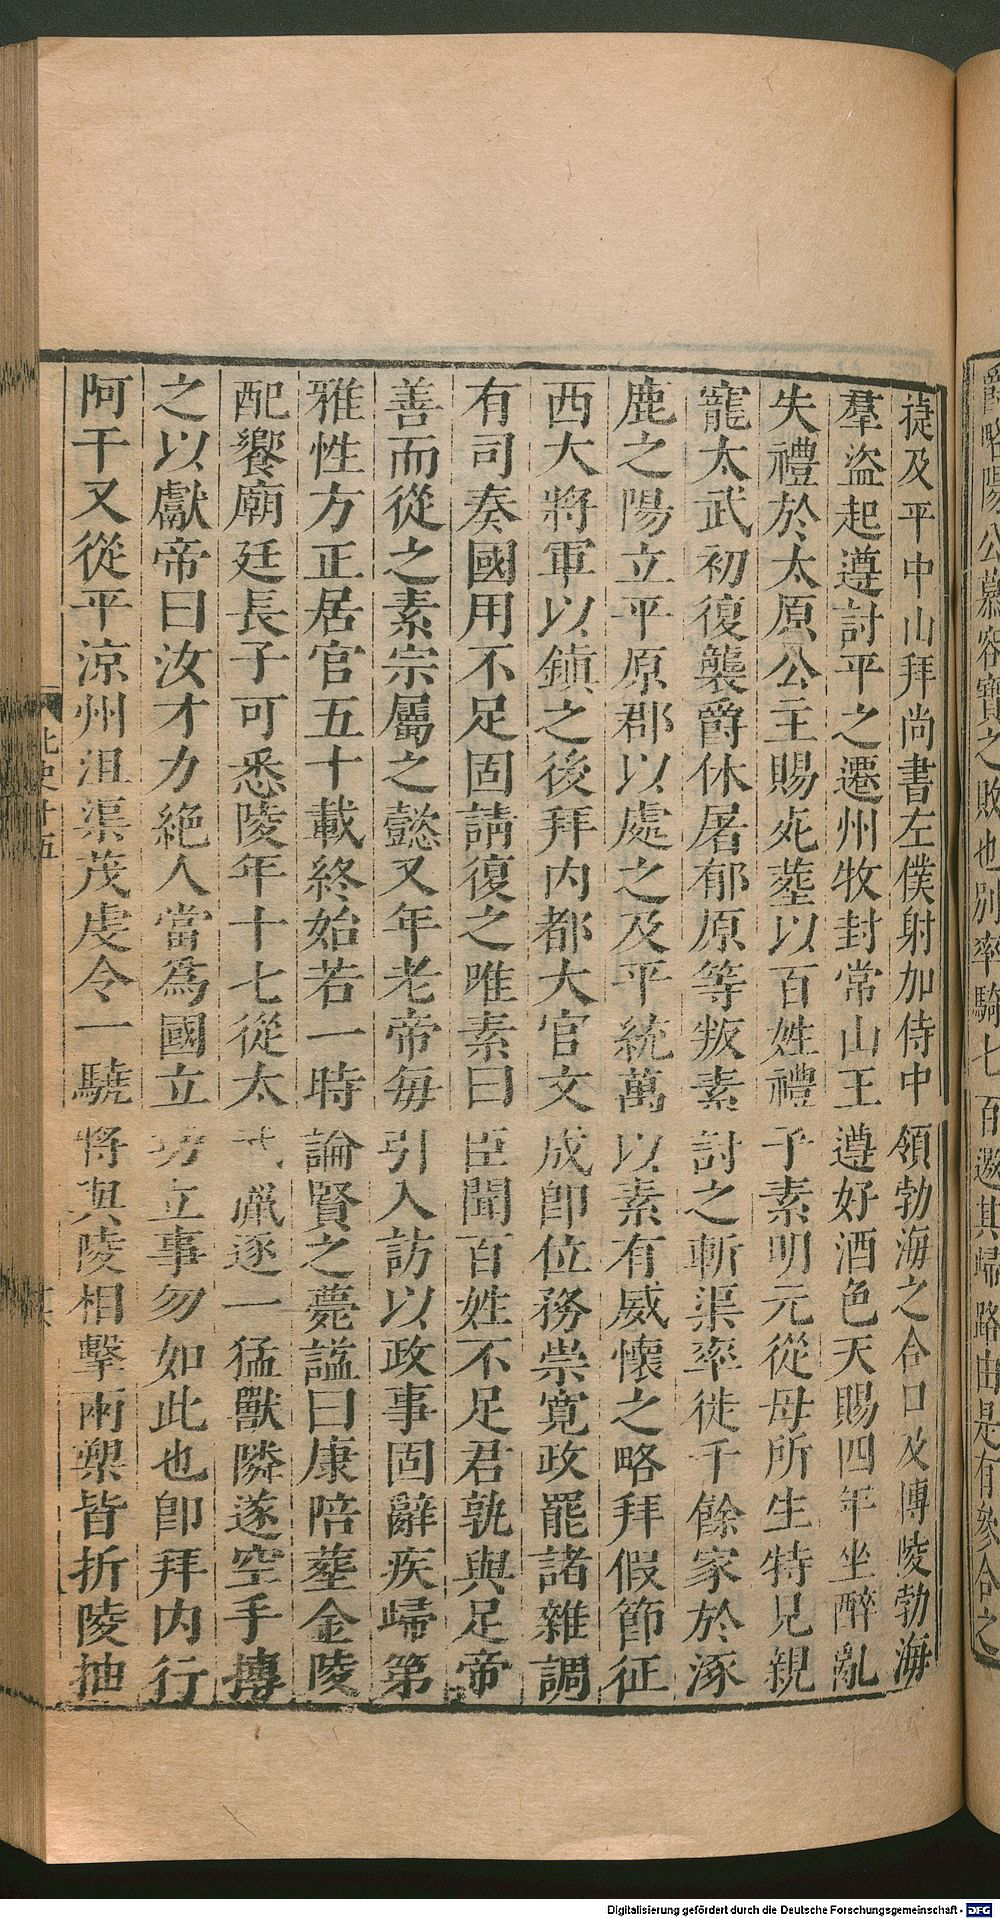 爵略陽公慕容寶之敗也別率騎七百邀其歸路由是有參合之
㨗及平中山拜尚書左僕射加侍中領勃海之合口及博陵勃海
羣盜起遵討平之遷州牧封常山王遵好酒色天賜四年坐醉亂
失禮於太原公主賜死葬以百姓禮子素明元從母所生特見親
寵太武初復襲爵休屠郁原等叛素討之斬渠率徙千餘家於涿
鹿之陽立平原郡以處之及平統萬以素有威懷之略拜假節征
西大將軍以鎮之後拜內都大官文成卽位務崇寬政罷諸雜調
有司奏國用不足固請復之唯素曰臣聞百姓不足君孰與足帝
善而從之素宗屬之懿又年老帝每引入訪以政事固辭疾歸第
雅性方正居官五十載終始若一時論賢之薨諡曰康陪葬金陵
配饗廟廷長子可悉陵年十七從太武獵逐一猛獸陵遂空手搏
之以獻帝曰汝才力絶人當爲國立功立事勿如此也卽拜内行
阿干又從平涼州沮渠茂虔令一驍將與陵相擊兩槊皆折陵抽
北史十五
Digitalisierung gefördert durch die Deutsche Forschungsgemeinschaft - DFG